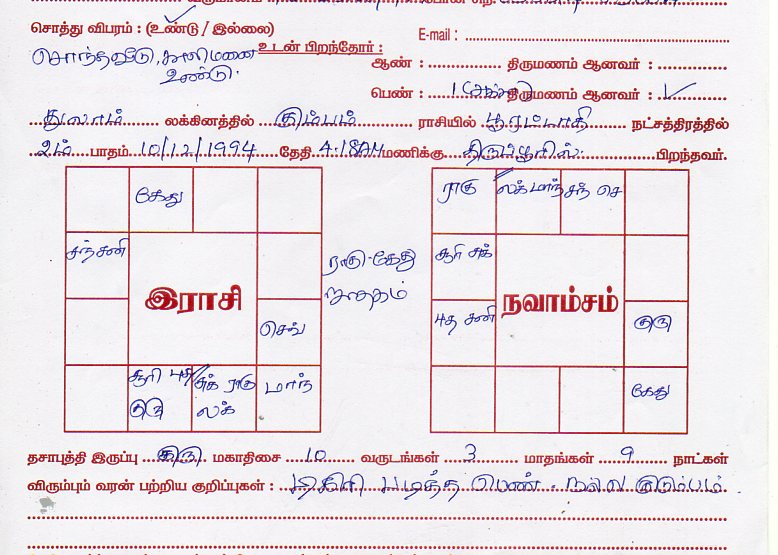 சொத்து விபரம் : (உண்டு / இல்லை)
E-mail :
சொந்தவீடு, காலிமனை உடன் பிறந்தோர் :
உண்டு.
ஆண் : திருமணம் ஆனவர் :
பெண் : 1 திருமணம் ஆனவர் : ✓
துலாம் லக்கினத்தில் கும்பம் ராசியில் பூரட்டாதி நட்சத்திரத்தில்
2ம் பாதம் 10/12/1994 தேதி 4.18AM மணிக்கு பிறந்தவர்.
கேது
சந் சனி
இராசி
செவ்
சூரி புத குரு
சுக் ராகு லக்
மாந்
ராகு-கேது
ஜாதகம்
ராகு லக் மாந் சந் செ
சூரி சுக்
புத சனி
நவாம்சம்
குரு
கேது
தசாபுத்தி இருப்பு குரு மகாதிசை 10 வருடங்கள் 3 மாதங்கள் 9 நாட்கள்
விரும்பும் வரன் பற்றிய குறிப்புகள் : டிகிரி படித்த பெண். நல்ல குடும்பம்